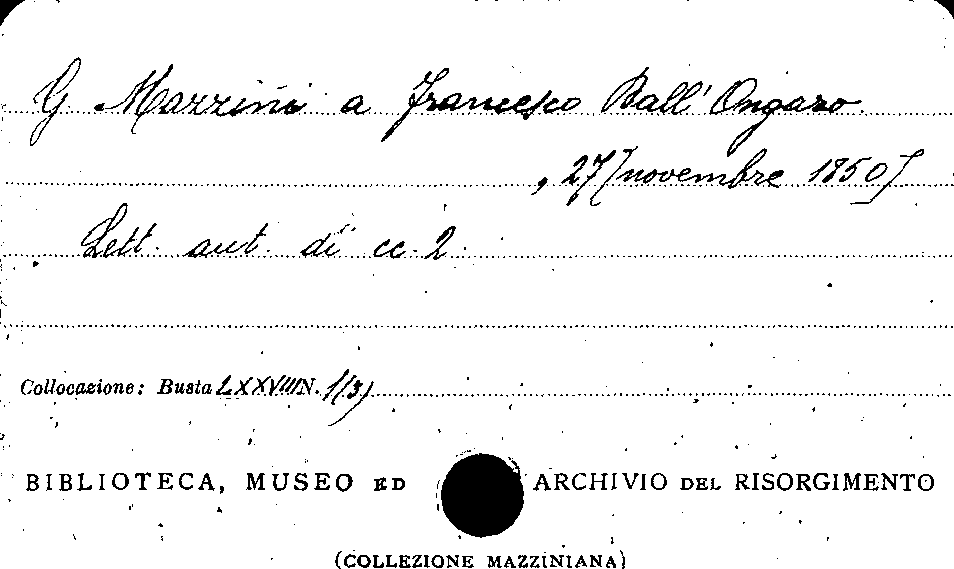 G Mazzini a Francesco Dall'Ongaro
, 27 [novembre 1850]
Lett. aut. di cc. 2.
Collocazione: Busta LXXVIII N. 1(3)
BIBLIOTECA, MUSEO ED ARCHIVIO DEL RISORGIMENTO
(COLLEZIONE MAZZINIANA)